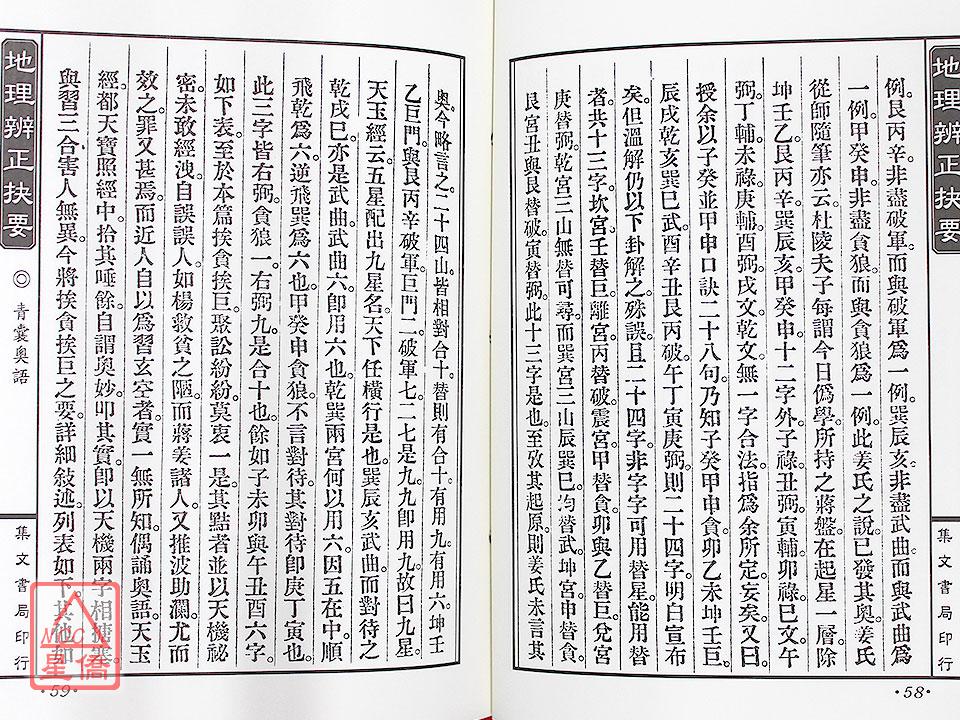 地理辨正抉要
例。艮丙辛。非盡破軍。而與破軍爲一例。巽辰亥。非盡武曲。而與武曲爲
一例。甲癸申。非盡貪狼。而與貪狼爲一例。此姜氏之說。已發其奥。姜氏
從師隨筆亦云。杜陵夫子每謂今日僞學。所持之蔣盤。在起星一層。除
坤壬乙。艮丙辛。巽辰亥。甲癸申。十二字外。子祿。丑弼。寅輔。卯祿。巳文。午
弼。丁輔。未祿。庚輔。酉弼。戌文。乾文。無一字合法。指爲余所定。妄矣。又曰。
授余以子癸並甲申口訣二十八句。乃知子癸甲申貪。卯乙未坤壬巨。
辰戌乾亥巽巳武。酉辛丑艮丙破。午丁寅庚弼。則二十四字。明白宣布
矣。但溫解仍以下卦解之。殊誤。且二十四字。非字字可用替星。能用替
者。共十三字。坎宮壬替巨。離宮丙替破。震宮甲替貪。卯與乙替巨。兌宮
庚替弼。乾宮三山無替可尋。而巽宮三山辰巽巳。均替武。坤宮申替貪。
艮宮丑與艮替破。寅替弼。此十三字是也。至攷其起原。則姜氏未言其
集文書局印行
·58·
地理辨正抉要
◎青囊奥語
奥。今略言之。二十四山皆相對合十。替則有合十。有用九。有用六。坤壬
乙巨門。與艮丙辛破軍。巨門二。破軍七。二七是九。九卽用九。故曰九星。
天玉經云。五星配出九星名。天下任橫行是也。巽辰亥武曲。而對待之
乾戌巳。亦是武曲。武曲六。卽用六也。乾巽兩宮。何以用六。因五在中。順
飛乾爲六。逆飛巽爲六也。甲癸申貪狼。不言對待。其對待卽庚丁寅也。
此三字皆右弼。貪狼一。右弼九。是合十也。餘如子未卯與午丑酉六字。
如下表。至於本篇挨貪挨巨。聚訟紛紛。莫衷一是。其黠者並以天機秘
密。未敢經洩。自誤誤人。如楊救貧之陋。而蔣姜諸人。又推波助瀾。尤而
效之。罪又甚焉。而近人自以爲習玄空者。實一無所知。偶誦奥語。天玉
經。都天寶照經中。拾其唾餘。自謂奥妙。叩其實。卽以天機兩字相搪塞。
與習三合害人無異。今將挨貪挨巨之要。詳細敍述。列表如下。其他如
集文書局印行
·59·
星僑